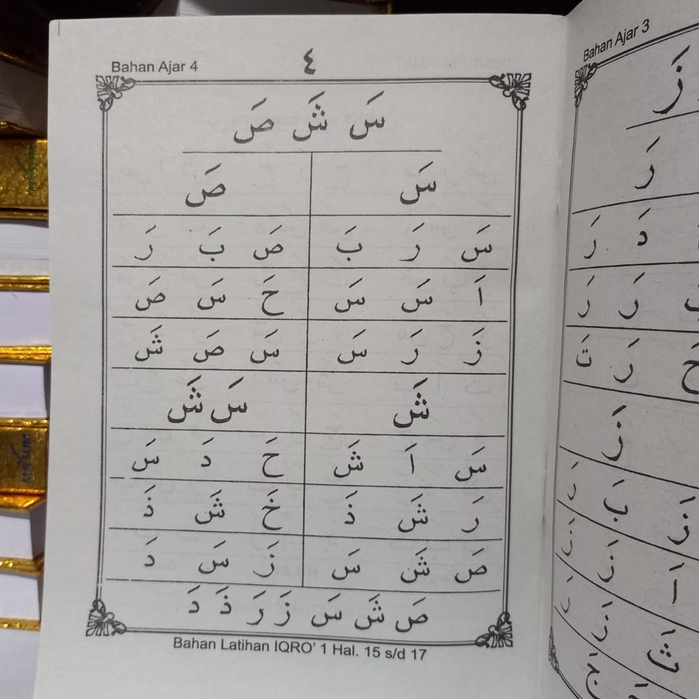 Bahan Ajar 4
٤
سَ شَ صَ
سَ صَ
سَ رَ بَ صَ بَ رَ
اَ سَ سَ حَ سَ صَ
زَ رَ سَ سَ صَ شَ
شَ سَ شَ
سَ اَ شَ حَ دَ سَ
رَ شَ ذَ خَ شَ ذَ
صَ شَ سَ زَ سَ دَ
صَ شَ سَ زَ رَ ذَ دَ
Bahan Latihan IQRO' 1 Hal. 15 s/d 17
Bahan Ajar 3
زَ
رَ
دَ رَ
رَ رَ
رَ تَ